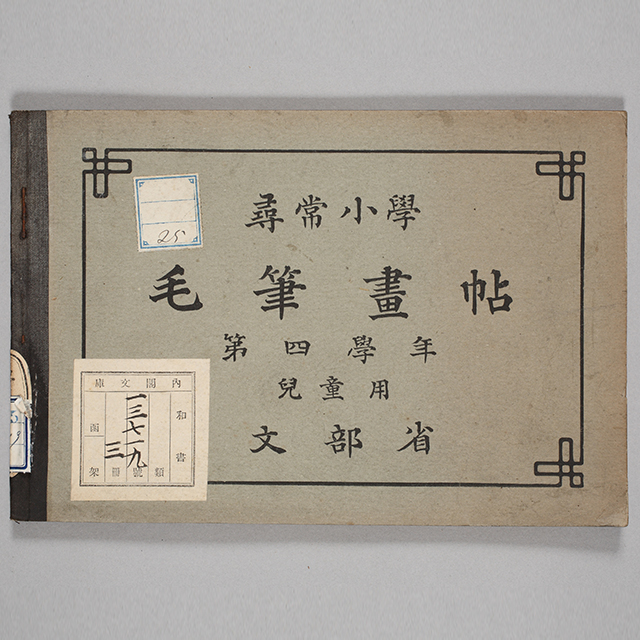 尋常小學
毛筆畫帖
第四學年
兒童用
文部省
25
內閣文庫
和書
類
一三七一九號
三冊
函
架